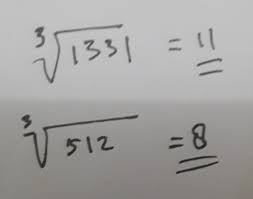 ∛1331 = 11
∛512 = 8